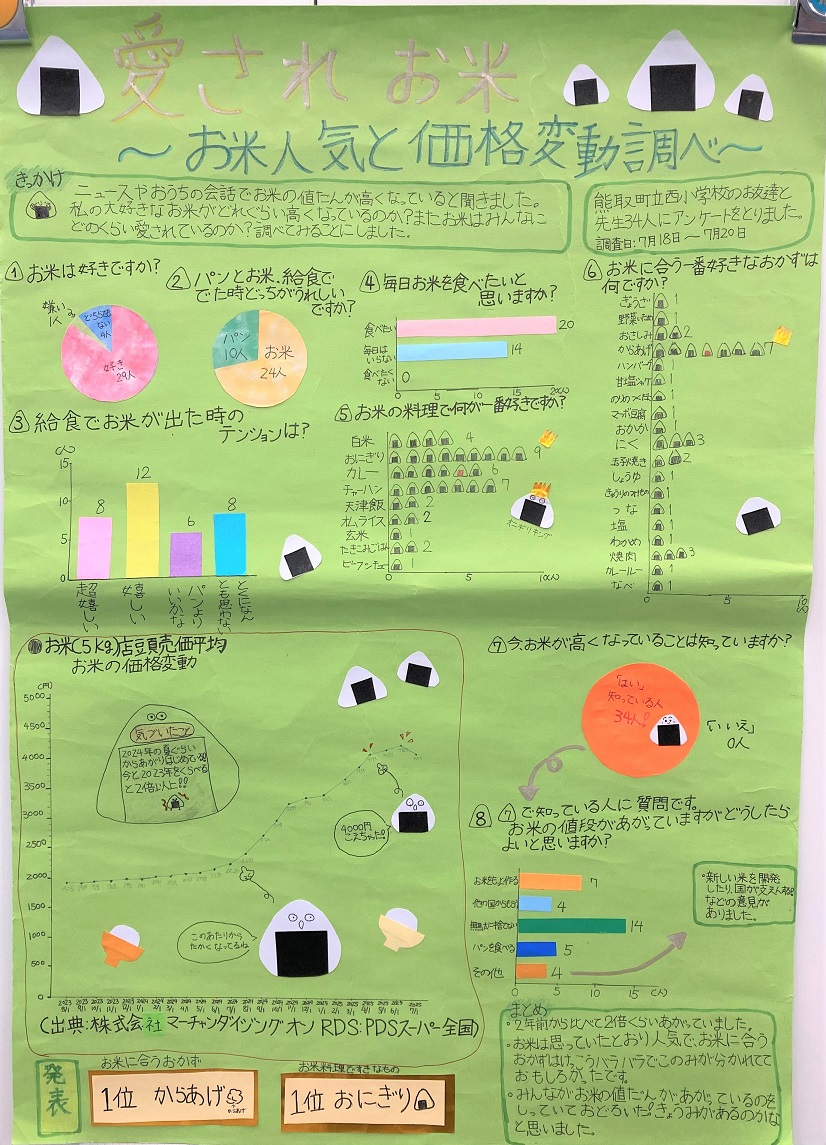 愛されお米
～お米人気と価格変動調べ～
きっかけ
ニュースやおうちの会話でお米の値だんが高くなっていると聞きました。
私の大好きなお米がどれぐらい高くなっているのか?またお米はみんなに
どのくらい愛されているのか?調べてみることにしました。
熊取町立西小学校のお友達と
先生34人にアンケートをとりました。
調査日:7月18日～7月20日
①お米は好きですか?
嫌い
1人
どちらでも
ない
4人
好き
29人
②パンとお米、給食で
でた時どっちがうれしい
ですか?
パン
10人
お米
24人
③給食でお米が出た時の
テンションは?
(人)
15
10
5
0
8
12
6
8
超嬉しい
嬉しい
パンより
いいかな
とくになん
とも思わない
④毎日お米を食べたいと
思いますか?
食べたい
20
毎日は
いらない
14
食べたく
ない
0
0
5
10
15
20(人)
⑤お米の料理で何が一番好きですか?
白米
4
おにぎり
9
カレー
6
チャーハン
7
天津飯
2
オムライス
2
玄米
1
たきこみごはん
2
1
0
5
10(人)
オニギリキング
⑥お米に合う一番好きなおかずは
何ですか?
ぎょうざ
1
野菜いため
1
おさしみ
2
からあげ
7
ハンバーグ
1
甘塩シャケ
1
のりのつくだに
1
マーボ豆腐
1
おかか
1
にく
3
玉子焼き
2
しょうゆ
1
1
つな
1
塩
1
わかめ
1
焼肉
3
カレールー
1
なべ
1
0
5
10(人)
●お米(5kg)店頭売価平均
お米の価格変動
(円)
5000
4500
4000
3500
3000
2500
2000
1500
1000
500
0
気づいたこと
2024年の夏ぐらい
からあがりはじめている
今と2023年をくらべる
と2倍以上に!!
4000円
こえちゃった!
このあたりから
たかくなってるね
(出典:株式会社マーチャンダイジングオン RDS:PDSスーパー全国)
⑦今、お米が高くなっていることは知っていますか?
「はい」
知っている人
34人!
「いいえ」
0人
⑧⑦で知っている人に質問です。
お米の値段があがっていますがどうしたら
よいと思いますか?
お米をもっと作る
7
他の国からもらう
4
無駄に捨てない
14
パンを食べる
5
その他
4
0
5
10
15
(人)
・新しい米を開発
したり、国が支えんする
などの意見が
ありました。
まとめ
・2年前から比べて2倍くらいあがっていました。
・お米は思っていたとおり人気で、お米に合う
おかずはけっこうバラバラでこのみが分かれてて
おもしろかったです。
・みんながお米の値だんがあがっているのを
しっていておどろいた!きょうみがあるのかな
と思いました。
発表
お米に合うおかず
1位 からあげ
からあげ
お米料理ですきなもの
1位 おにぎり